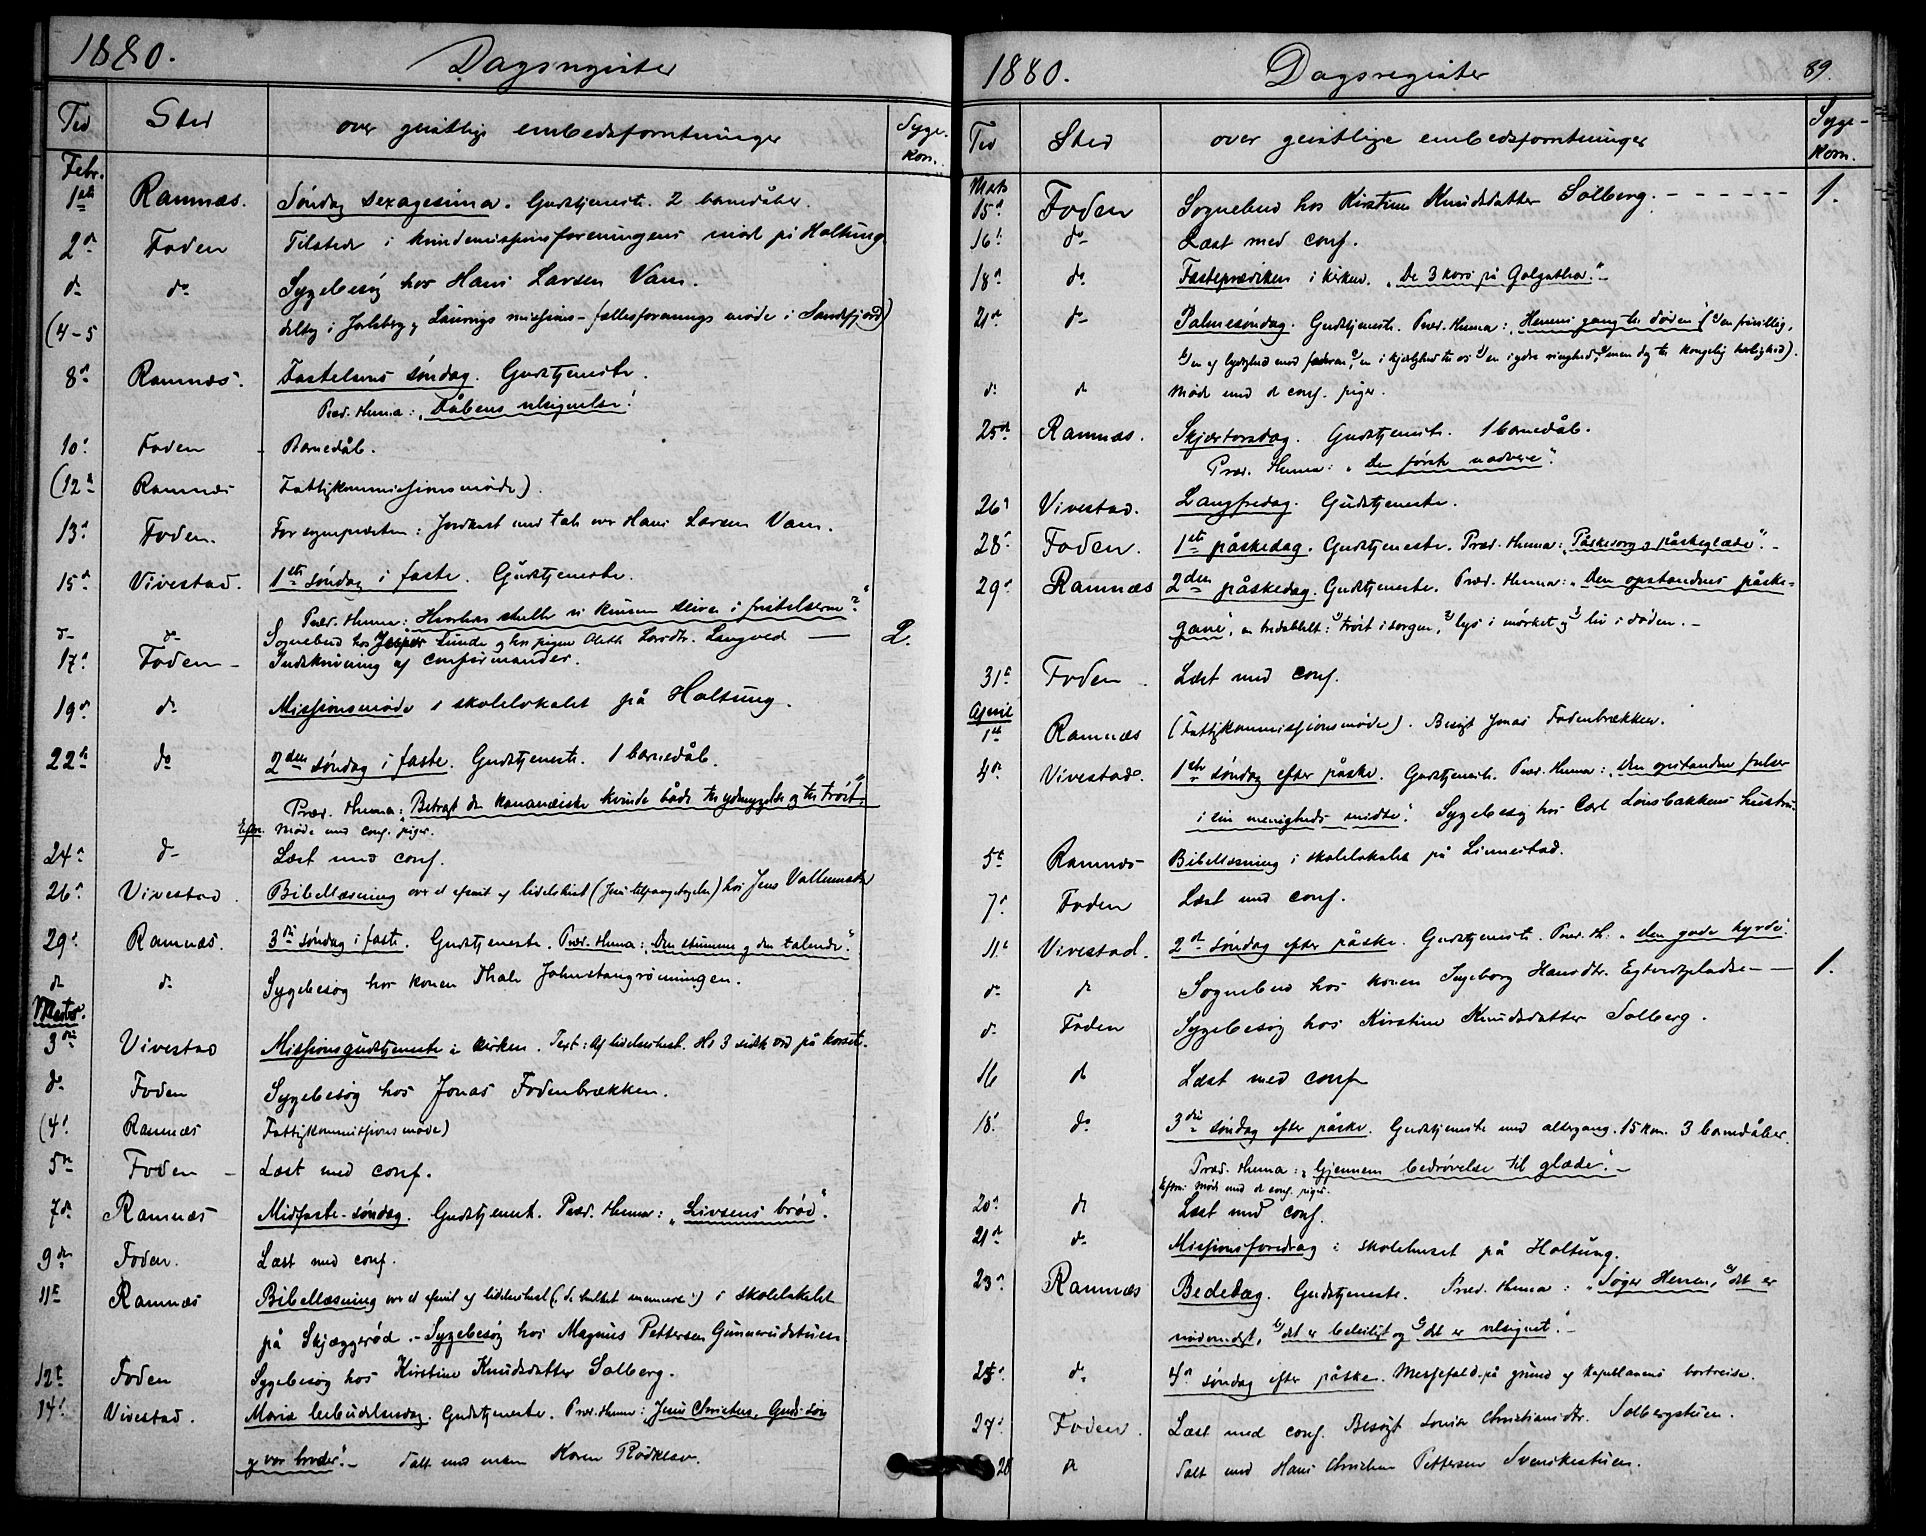 1880.
Dagsregister
Tid
Sted
over geistlige embedsforretninger
Syge-
kom.
Febr.
1ste Ramnæs. Søndag sexagesima. Gudstjeneste. 2 barnedåber.
2d Foden Tilstede i kvindemissionsforeningens møde på Holtung
do do Sygebesøg hos Hans Larsen Vam.
(4-5 deltog i Jarlsberg og Laurvigs missions-fællesforenings møde i Sandefjord)
8d Ramnæs. Fastelavns søndag. Gudstjeneste.
Præd. thema: „Dåbens velsignelse."
10d Foden - Barnedåb.
(12d Ramnæs Fattigkommissionsmøde).
13d Foden. For sognepresten: Jordkast med tale over Hans Larsen Vam.
15d Vivestad. 1ste søndag i faste. Gudstjeneste.
Præd. thema: Hvorledes skulle vi kunne seire i fristelserne?"
do do Sognebud hos Jesper Lunde og hos pigen Aleth Larsdtr. Langved — 2.
17d Foden - Indskrivning af confirmander.
19d do Missionsmøde i skolelokalet på Holtung.
22d do 2den søndag i faste. Gudstjeneste. 1 barnedåb.
Præd. thema: Betragt den kananæiske kvinde både til ydmygelse og til trøst."
Efterm. Møde med conf. piger.
24d do Læst med conf.
26d Vivestad. Bibellæsning over et afsnit af lidelseshist. (Jesu tilfangetagelse) hos Jens Vallumsrød
29d Ramnæs. 3die søndag i faste. Gudstjeneste. Præd. thema: „Den stumme og den talende".
do do Sygebesøg hos konen Thale Johnstangrønningen.
Marts.
3die Vivestad Missionsgudstjeneste i kirken. Text: Af lidelseshist. Hs 3 sidste ord på korset.
do Foden Sygebesøg hos Jonas Fodenbrækken.
(4d Ramnæs Fattigkommissionsmøde)
5te Foden - Læst med conf.
7de Ramnæs Midfaste-søndag. Gudstjeneste. Præd. thema: „Livsens brød".
9de Foden. Læst med conf.
11te Ramnæs Bibellæsning over et afsnit af lidelseshist. i skolelokalet
på Skjæggerød. - Sygebesøg hos Magnus Pettersen Gunnerudstuen
12te Foden Sygebesøg hos Kirstine Knudsdatter Solberg.
14d Vivestad. Mariæ bebudelsesdag. Gudstjeneste. Præd. thema: „Jesus Christus, Guds søn
og vor broder." - Talt med Karen Rødklev.
1880.
Dagsregister
89.
Tid
Sted
over geistlige embedsforretninger
Syge-
kom.
Marts
15d Foden Sognebud hos Kirstine Knudsdatter Solberg. - - - - - - 1.
16d do Læst med conf.
18d do Fasteprædiken i kirken. „De 3 kors på Golgatha." -
21de do Palmesøndag. Gudstjeneste. Præd. thema: Herrens gang til døden (1) en frivillig,
2) en af lydighed mod faderen, 3) en i kjærlighed til os 4) en i ydre ringhed, 5) men dog til kongelig herlighed).
do do Møde med de conf. piger.
25de Ramnæs. Skjærtorsdag. Gudstjeneste. 1 barnedåb.
Præd. thema: „den første nadvere".
26d Vivestad. Langfredag. Gudstjeneste.
28d Foden. 1ste påskedag. Gudstjeneste. Præd. thema: „Påskesorg og påskeglæde". -
29d Ramnæs 2den påskedag. Gudstjeneste. Præd. thema: „Den opstandnes påske-
gave, en tredobbelt: 1) trøst i sorgen, 2) lys i mørket og 3) liv i døden. -
31te Foden Læst med conf.
April
1ste Ramnæs (Fattigkommissionsmøde). Besøgt Jonas Fodenbrækken.
4de Vivestad. 1ste søndag efter påske. Gudstjeneste. Præd. thema: „den opstandne frelser
i sin menigheds midte". Sygebesøg hos Carl Lønsbakkens hustru.
5te Ramnæs Bibellæsning i skolelokalet på Linnestad.
7d Foden Læst med conf.
11te Vivestad. 2den søndag efter påske. Gudstjeneste. Præd. th. „den gode hyrde."
do do Sognebud hos konen Ingeborg Hansdtr. Egtvedtpladsen - 1.
do Foden Sygebesøg hos Kirstine Knudsdatter Solberg.
16 do Læst med conf
18d do 3die søndag efter påske. Gudstjeneste med altergang. 15 kom. 3 barnedåber.
Præd. thema: „Gjennem bedrøvelse til glæde". -
Efterm. Møde med de conf. piger.
20d do Læst med conf.
21de do Missionsforedrag i skolehuset på Holtung.
23d Ramnæs Bededag. Gudstjeneste. Præd. thema: „Søger Herren, a) det er
nødvendigt, b) det er beleiligt og c) det er velsignet." -
25d do 4de søndag efter påske. Messefald på grund af kapellanens bortreise.
27d Foden. Læst med conf. Besøgt Lovise Christiansdtr. Solbergstuen.
28 do Talt med Hans Christian Pettersen Svenskestuen.